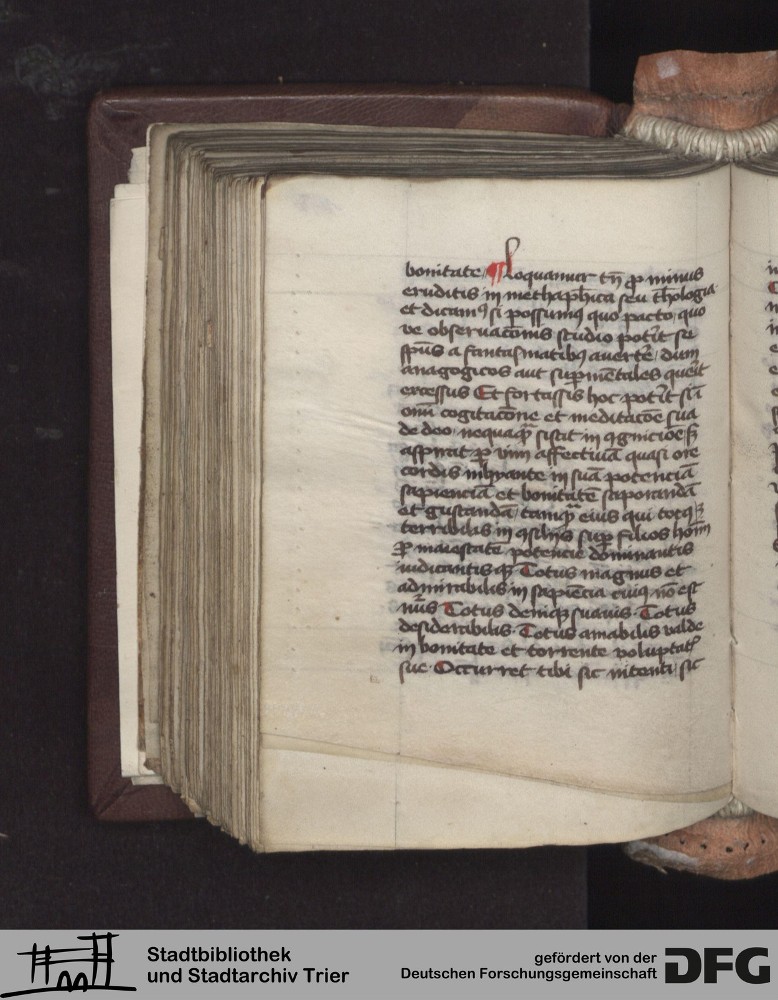 bonitate ¶ Loquamur tn̄ ꝑ minus
eruditis in methaphīca seu theologia
et dicamꝰ si possumꝰ quo pacto quo
ve obseruacōnis studio potīt se
sp̄us a fantasmatibꝫ auerte᷑ dum
anagogicos aut suꝑmētales querit
excessus Et fortassis hoc potīt si ī
om̄i cogitacōne et meditacōe sua
de deo nequaq̄ sistit in ꝯgnicōe sꝫ
aspirat ꝑ vim affectiuā quasi ore
cordis inhyante in suā potenciā
sapienciā et bonitatē saporandā
et gustandā tamq̄ eius qui totꝰ ē
terribilis in ꝯsilijs suꝑ filios hoīm
ꝑ maiestatē potencie dominantis
iudicantisqꝫ Totus magnus et
admirabilis in sapiēcia cuiꝰ nō est
nūs Totus deniqꝫ suauis Totus
desiderabilis Totus amabilis valde
in bonitate et torrente voluptatꝭ
sue Occurret tibi sic nitenti sic
Stadtbibliothek
und Stadtarchiv Trier
gefördert von der
Deutschen Forschungsgemeinschaft
DFG